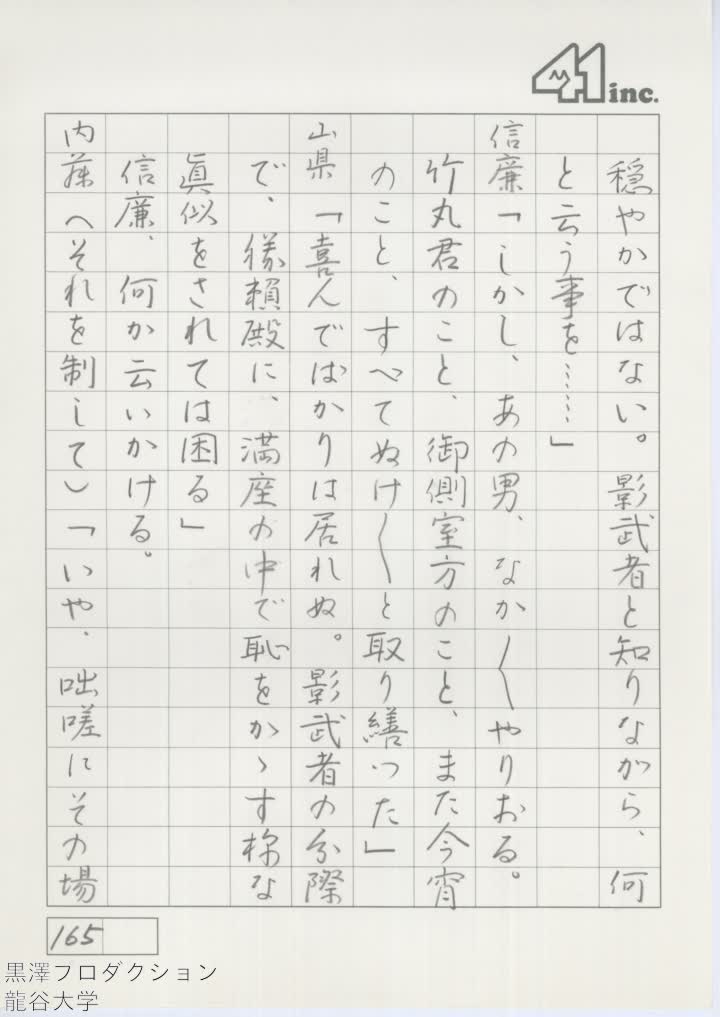 41 inc.
穏やかではない。影武者と知りながら、何
と云う事を……」
信廉「しかし、あの男、なか〱やりおる。
竹丸君のこと、御側室方のこと、また今宵
のこと、すべてぬけ〱と取り繕った」
山県「喜んでばかりは居れぬ。影武者の分際
で、勝頼殿に、満座の中で恥をかゝす様な
眞似をされては困る」
信廉、何か云いかける。
内藤へそれを制して)「いや、咄嗟にその場
165
黒澤プロダクション
龍谷大学